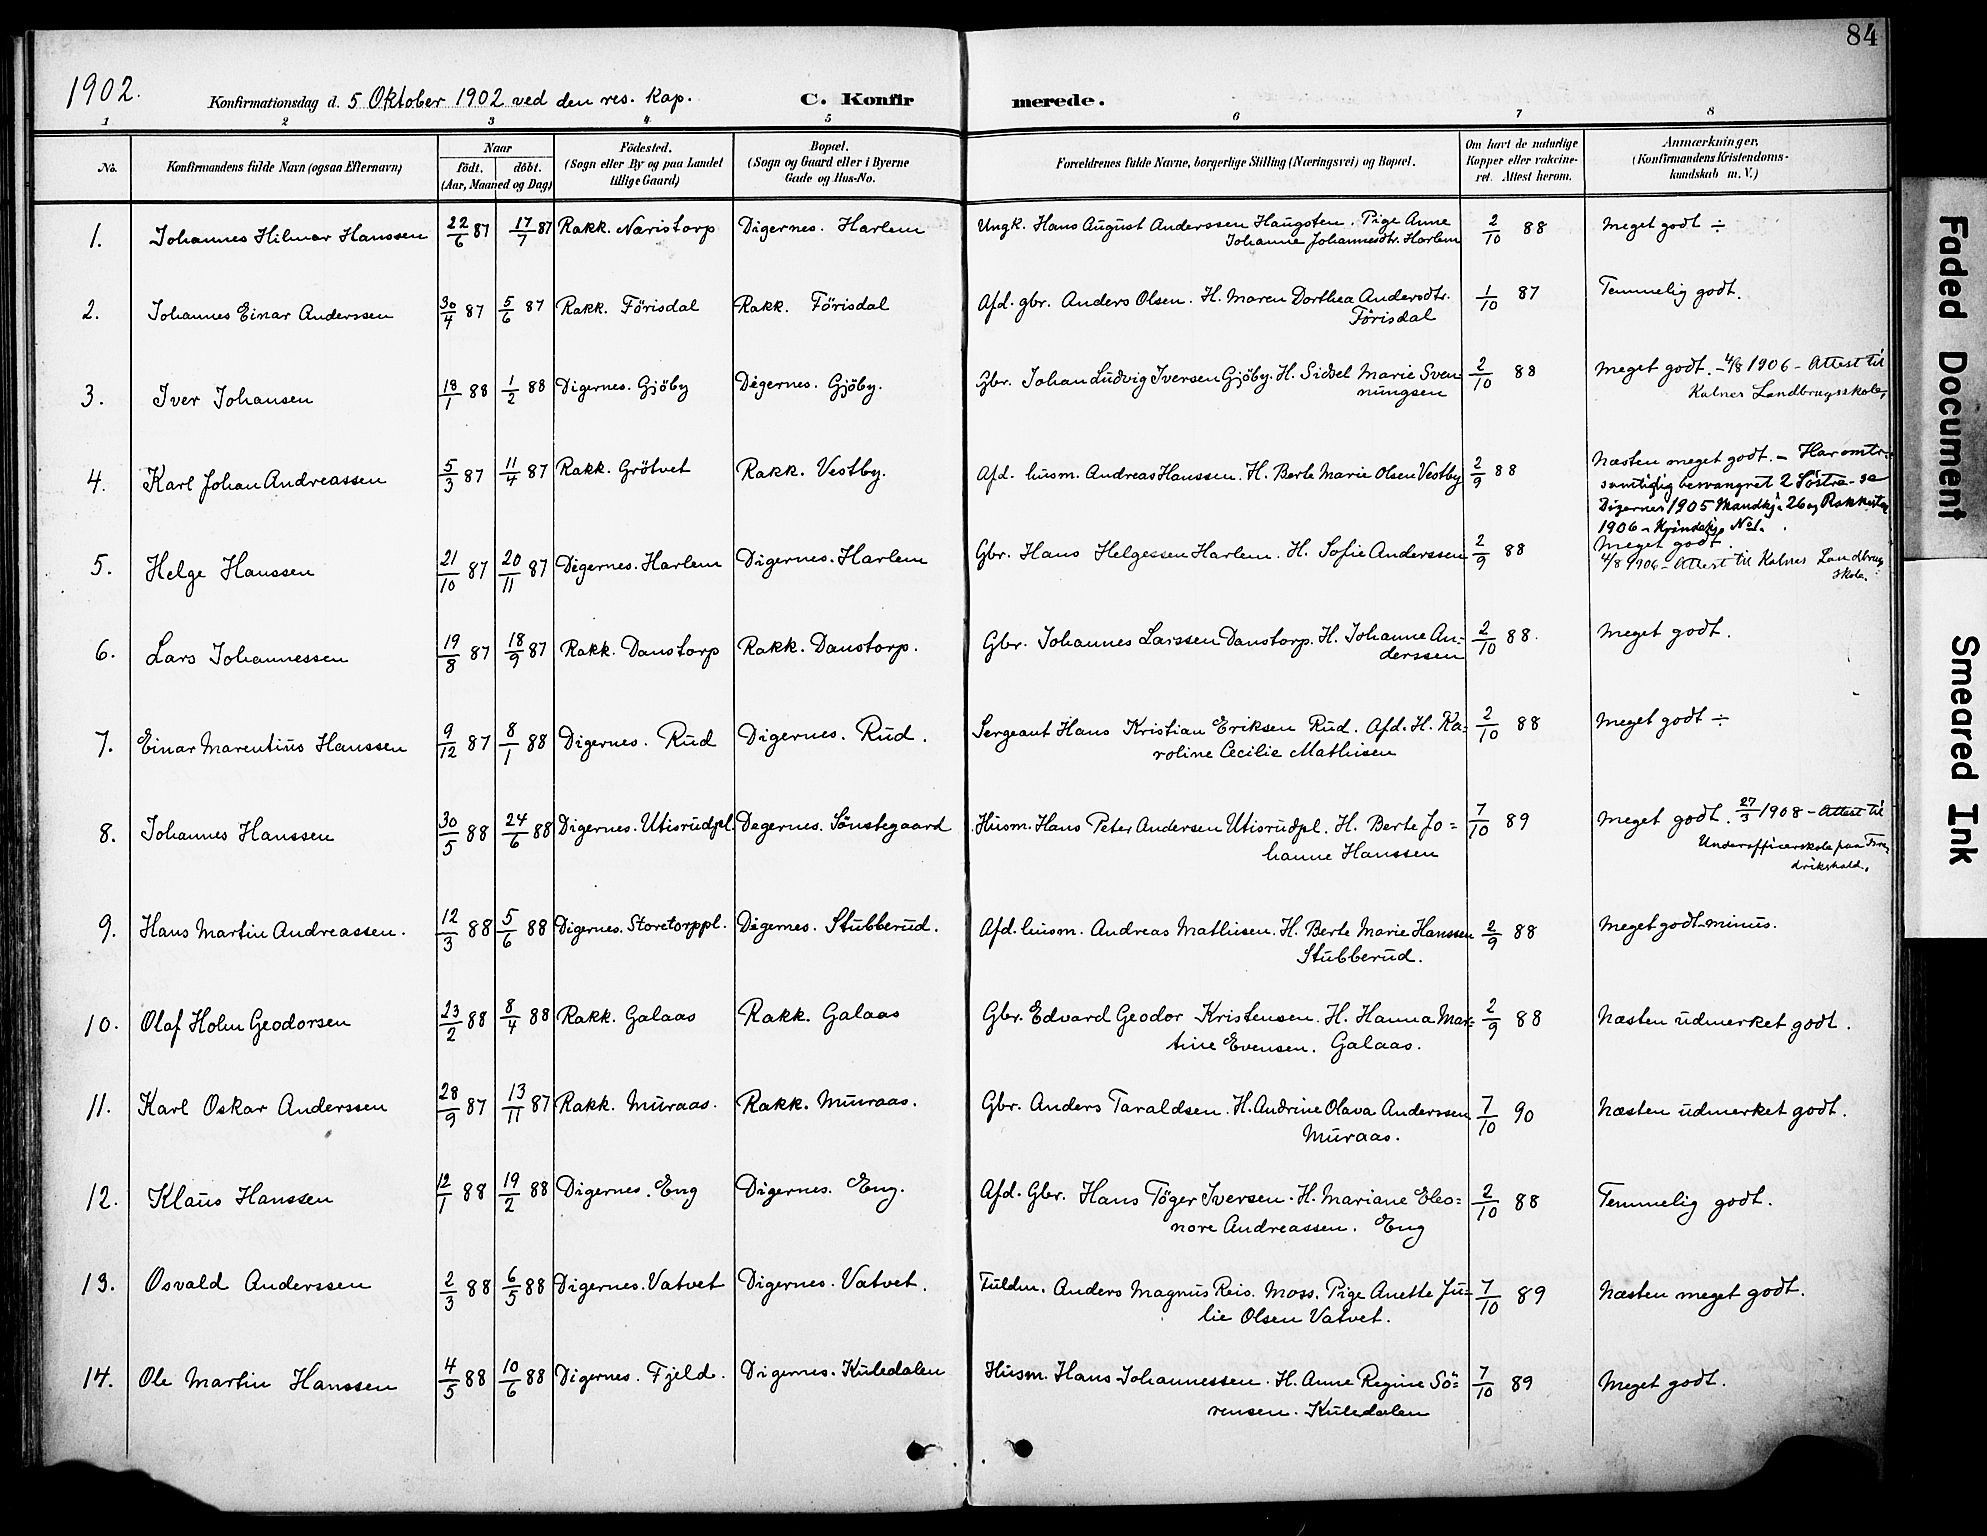 84
1902.
Konfirmationsdag d. 5 Oktober 1902 ved den res. Kap. C. Konfirmerede.
1 2 3 4 5 6 7 8
No. Konfirmandens fulde Navn (ogsaa Efternavn) Naar født. døbt. (Aar, Maaned og Dag) Födested. (Sogn eller By og paa Landet tillige Gaard) Bopæl. (Sogn og Gaard eller i Byerne Gade og Hus-No. Forældrenes fulde Navne, borgerlige Stilling (Næringsvei) og Bopæl. Om havt de naturlige Kopper eller vakcineret. Attest herom. Anmærkninger. (Konfirmandens Kristendomskundskab m. V.)
1. Johannes Hilmar Hanssen 22/6 87 17/7 87 Rakk. Næristorp Digernes. Harlem Ungk. Hans August Anderssen Haugsten. Pige Anne 2/10 88 Meget godt ÷
Johanne Johannesdtr. Harlem
2. Johannes Einar Anderssen 30/4 87 5/6 87 Rakk. Förisdal Rakk. Förisdal Afd. gbr. Anders Olsen. H. Maren Dorthea Andersdtr. 1/10 87 Temmelig godt.
Förisdal
3. Iver Johansen 18/1 88 1/2 88 Digernes. Gjöby Digernes. Gjöby. Gbr. Johan Ludvig Iversen Gjöby. H. Sidsel Marie Sven 2/10 88 Meget godt. - 4/8 1906 - Attest til
nungsen Kalnes Landbrugsskole,
4. Karl Johan Andreassen 5/3 87 11/4 87 Rakk. Grötvet Rakk. Vestby. Afd. husm. Andreas Hanssen. H. Berte Marie Olsen Vestby 2/9 88 Næsten meget godt. - Har omtr.
samtidig besvangret 2 Söstre - se
Digernes 1905 Mandkj. 26 og Rakkestad
1906 - Kvindekj. No 1.
5. Helge Hanssen 21/10 87 20/11 87 Digernes. Harlem Digernes. Harlem Gbr. Hans Helgessen Harlem. H. Sofie Anderssen 2/9 88 Meget godt
4/8 1906 - Attest til Kalnes Landbrug
skole.
6. Lars Johannessen 19/8 87 18/9 87 Rakk. Danstorp Rakk. Danstorp. Gbr. Johannes Larssen Danstorp. H. Johanne An= 2/10 88. Meget godt.
derssen
7. Einar Marentius Hanssen 9/12 87 8/1 88 Digernes. Rud Digernes. Rud. Sergeant Hans Kristian Eriksen Rud. Afd. H. Ka= 2/10 88 Meget godt ÷
roline Cecilie Mathisen
8. Johannes Hanssen 30/5 88 24/6 88 Digernes. Utisrudpl. Degernes. Sönstegaard Husm. Hans Peter Andersen Utisrudpl. H. Berte Jo= 7/10 89 Meget godt. 27/3 1908 - Attest til
hanne Hanssen Underofficerskole paa Fre
drikshald.
9. Hans Martin Andreassen. 12/3 88 5/6 88 Digernes. Storetorppl. Digernes. Stubberud. Afd. husm. Andreas Mathisen. H. Berte Marie Hanssen 2/9 88 Meget godt minus.
Stubberud.
10. Olaf Holm Geodorsen 23/2 88 8/4 88 Rakk. Galaas Rakk. Galaas Gbr. Edvard Geodor Kristensen. H. Hanna Mar= 2/9 88 Næsten udmerket godt.
tine Evensen. Galaas.
11. Karl Oskar Anderssen 28/9 87 13/11 87 Rakk. Muraas. Rakk. Muraas. Gbr. Anders Taraldsen. H. Andrine Olava Anderssen 7/10 90 Næsten udmerket godt.
Muraas.
12. Klaus Hanssen 12/1 88 19/2 88 Digernes. Eng Digernes. Eng. Afd. Gbr. Hans Töger Iversen. H. Mariane Eleo= 2/10 88 Temmelig godt.
nore Andreassen. Eng
13. Osvald Anderssen 2/3 88 6/5 88 Digernes. Vatvet Digernes. Vatvet. Fuldm. Anders Magnus Reis. Moss. Pige Anette Ju= 7/10 89 Næsten meget godt.
lie Olsen Vatvet.
14. Ole Martin Hanssen 4/5 88 10/6 88 Digernes. Fjeld. Digernes. Kuledalen Husm. Hans Johannessen. H. Anne Regine Sö= 7/10 89 Meget godt.
rensen. Kuledalen
Faded Document
Smeared Ink